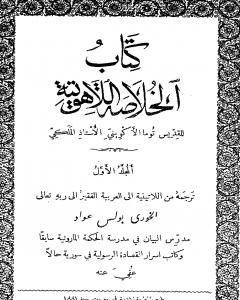 كتاب
الخلاصة اللاهوتية
للقديس توما الاكويني الاستاذ الملكي
المجلد الاول
ترجمهُ من اللاتينية الى العربية الفقير الى ربهِ تعالى
الخوري بولس عواد
مدرّس البيان في مدرسة الحكمة المارونية سابقًا
وكاتب اسرار القصادة الرسولية في سورية حالاً
عُفي عنه